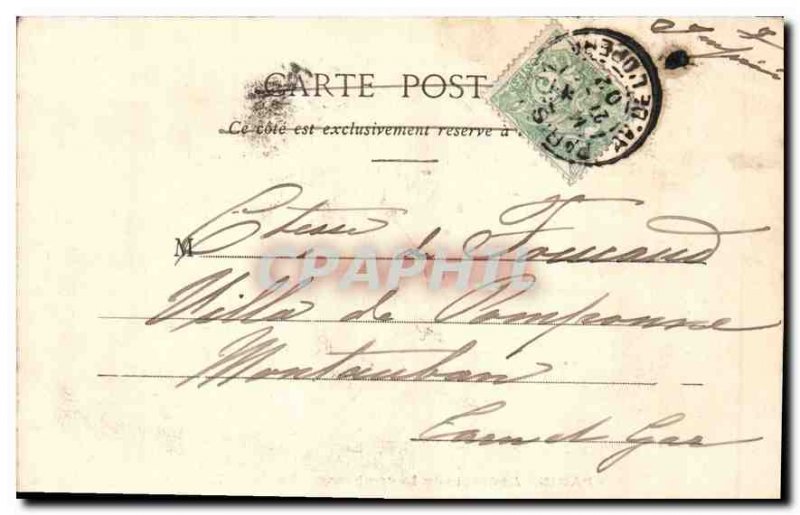 CARTE POST
Ce côté est exclusivement reserve à
M Ctesse de
Villa de Pomponne
Montauban
Tarn et Gar
CPAPHIL
PARIS
AV. DE L'OPERA